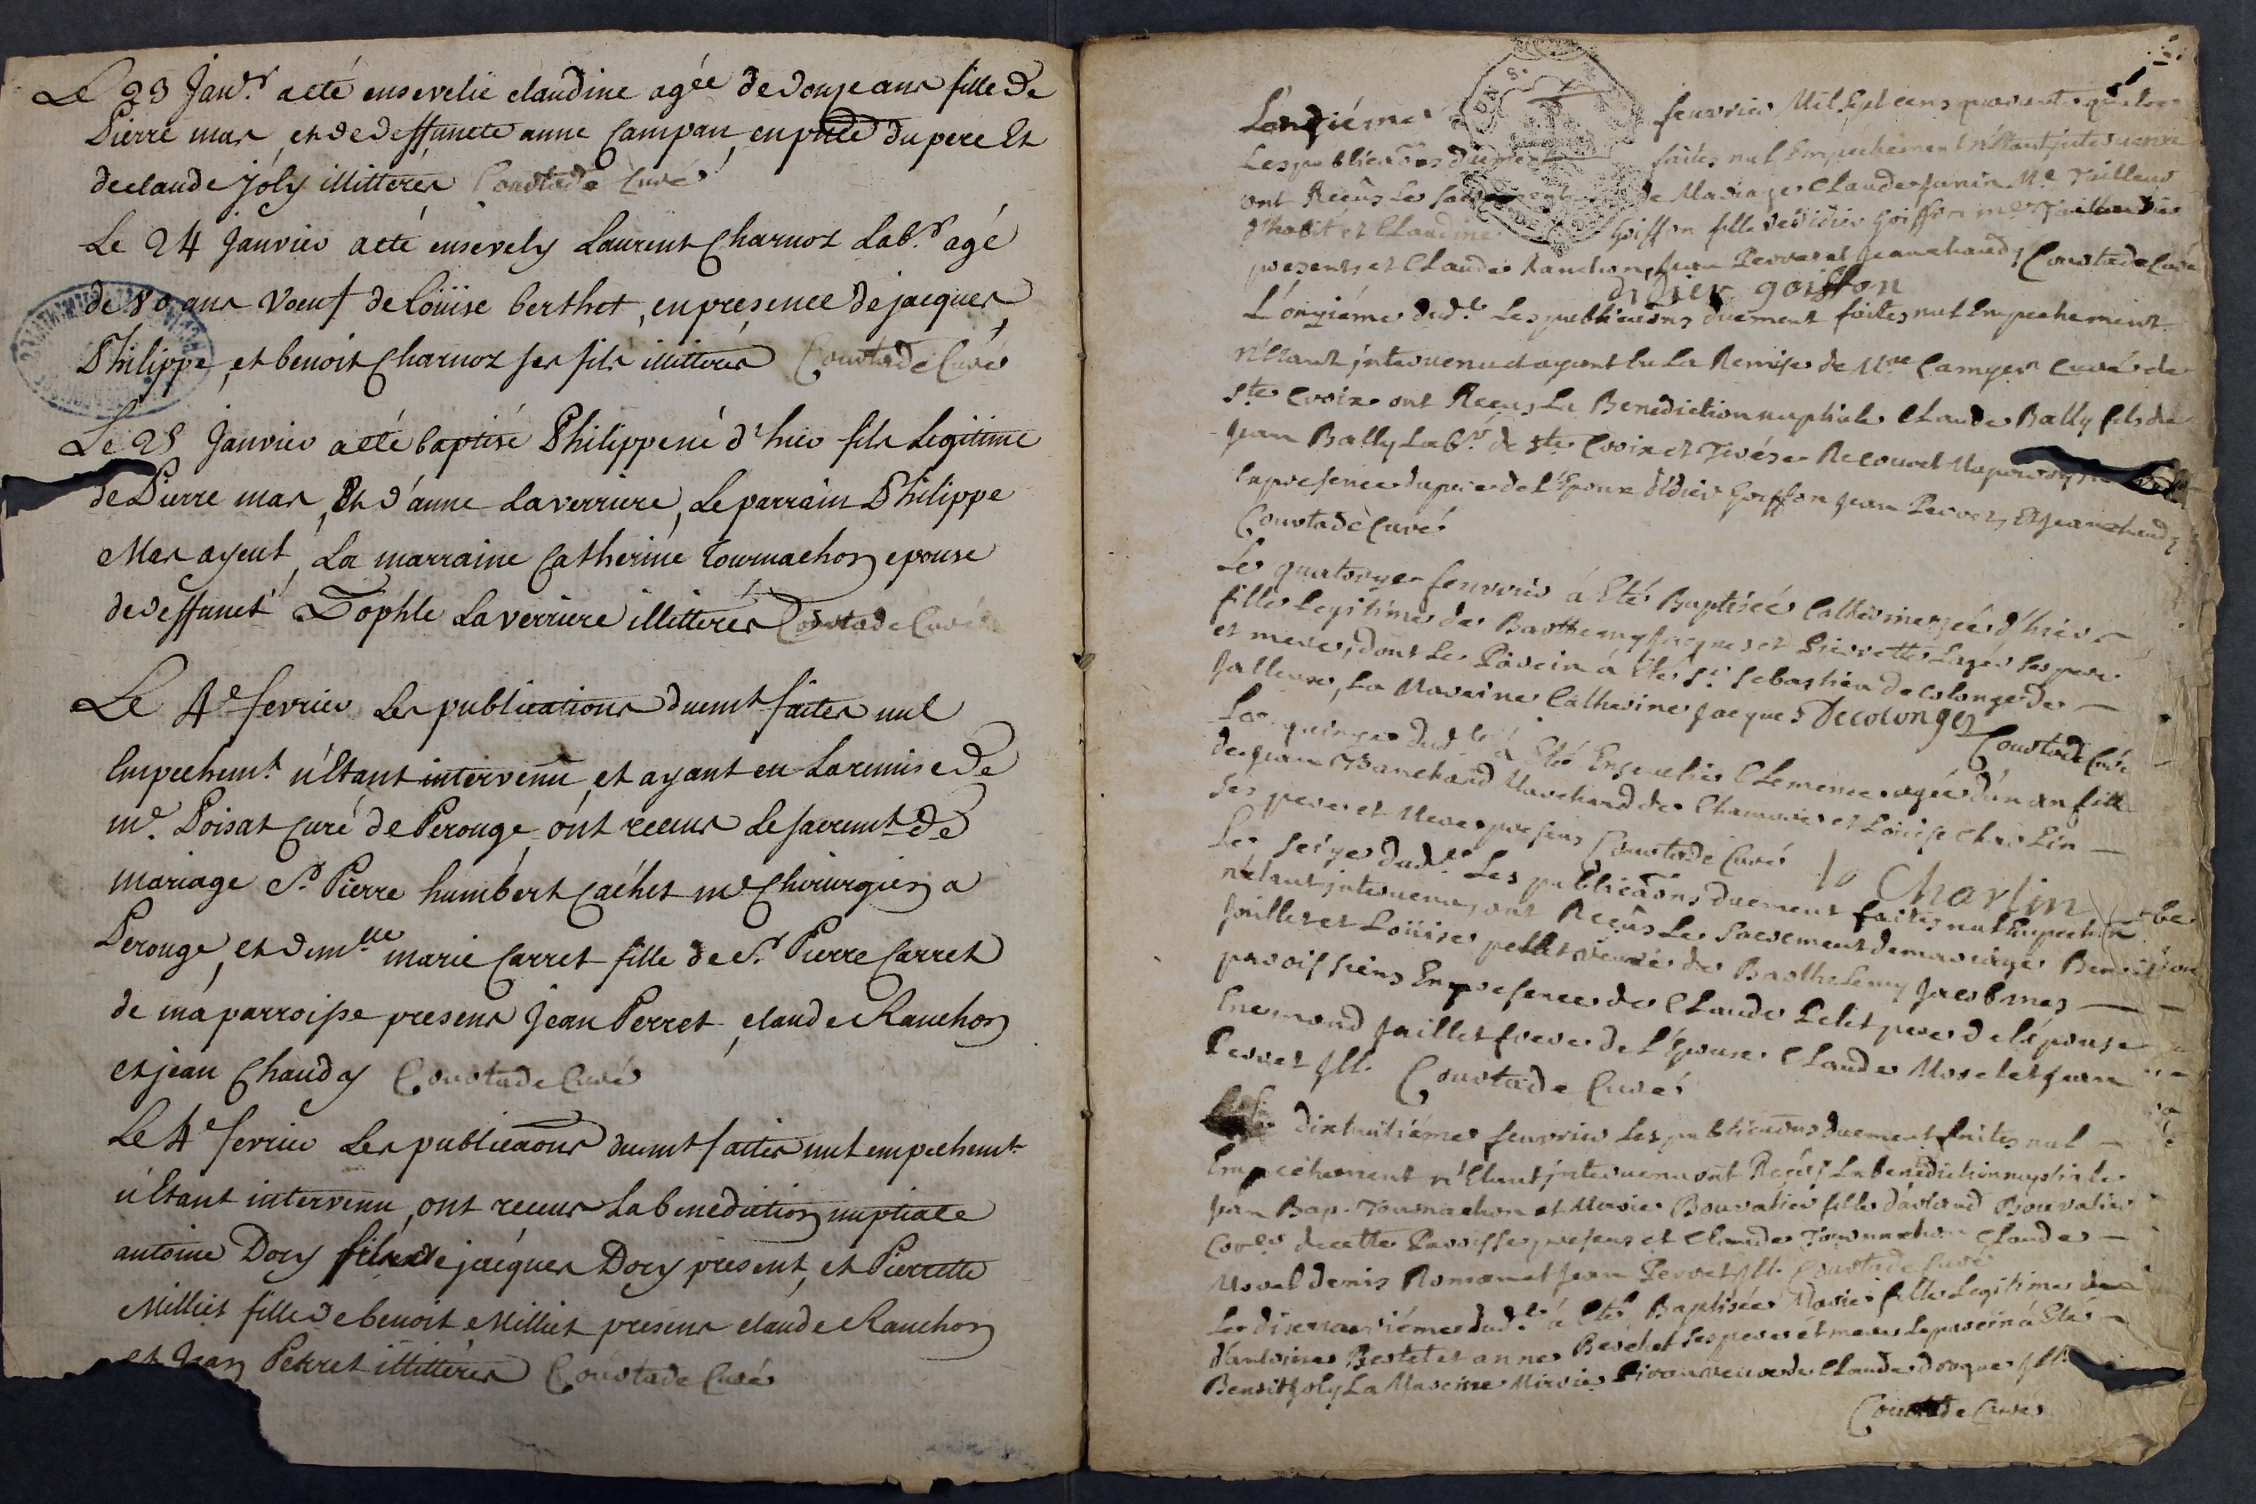 Le 23 Janv.r a eté ensevelie claudine agée de douze ans fille de
Pierre mas, et de deffuncte anne Campan, en pñce du pere Et
de claude joly illitterés Coustade Curé
Le 24 Janvier a eté ensevely Laurent Charnoz Lab.r agé
de 80 ans Voeuf de Loüise berthet, en presence de jacques,
Philippe, et benoit Charnoz ses fils illitterés Coustade Curé
Le 25 Janvier a eté baptisé Philippe né d'hier fils Legitime
de Pierre mas, Et d'anne Laverriere, Le parrain Philippe
Mas ayeut, La marraine Catherine Tournachon epouse
de deffunct Tophle Laverriere illitterés Coustade Curé
Le 4e fevrier Les publications duemt faites nul
Empechemt n'Etant intervenu, et ayant eu La remise de
mr. Poisat curé de Perouge, ont receus Le sacremt de
mariage Sr. Pierre humbert Cachet me Chirurgien a
Perouge, et demlle marie Carret fille de Sr. Pierre Carret
de ma parroisse presens Jean Perret, claude Ranchon
et jean Chanday Coustade Curé
Le 4e fevrier Les publicaons duemt faites nul empechemt
n'Etant intervenu, ont receus La benediction nuptiale
antoine Dory fils de jacques Dory present, et Pierrette
Milliet fille de benoit Milliet presens claude Ranchon
et Jean Perret illitterés Coustade Curé
L'onziéme feuvrier Mil Sept cens quarante
Les publicaons duement faites nul Empechement n'Etant jntervenu
ont Reçûs Le Sacrement de Mariage Claude Janin Me Tailleur
d'habit et Claudine Goiffon fille de Didier Goiffon me
presents et Claude Ranchon, Jean Perret et Jean chanday Coustade Curé
didier goiffon
L'onziéme dud.t Les publicaons duement faites nul Empechement
n'Etant jntervenu et ayant eu La Remise de Mre Camyer Curé de
Ste Croix ont Reçus La Benediction nuptiale Claude Bally fils de
Jean Bally Lab.r de Ste Croix et
En presence du pere de L'Epoux didier Goiffon Jean Perret, Et Jean chanday
Coustade Curé
Le quatorze feuvrier á Eté Baptisée Catherine née d'hier
fille Legitime de Barthemy Jacques et Pierrette Lagés Ses pere
et mere, dont Le Parein á Eté Sr. Sebastien de Colonge de
La Mareine Catherine Jacques Decolonges
Coustade Curé
Le quinze dud.t á Eté Ensevelie Clemence agée d'un an fille
de Jean Blanchard Marchand de Chamorie et Loüise
Ses pere et Mere presens Coustade Curé
Charlin
Le Seize dud.t Les publicaons duement faites nul Empechemt
n'étant jntervenu, ont Reçûs Le Sacrement de mariage Benoit
Juillet et Loüise petit veuve de Barthelemy Jacob mes
paroissiens En presence de Claude Petit pere de l'épouse
Enemond Juillet frere de L'Epoux Claude Morel et Jean
Perret Jll. Coustade Curé
dixhuitiéme feuvrier Les publicaons duement faites nul
Empéchement n'Etant jntervenu ont Reçûs La benediction nuptiale
Jean Bap. Tournachon et Marie Bouvatier fille d'
de cette Paroisse presens et Claude Tournachon Claude
Morel denis Romanet Jean Perret Jll. Coustade Curé
Le diznauviéme dud.t á Eté Baptisée Marie fille Legitime
d'antoine Bertet et anne Ses pere et mere Le parein á Eté
Benoit Joly La Mareine veuve de Claude
Coustade Curé